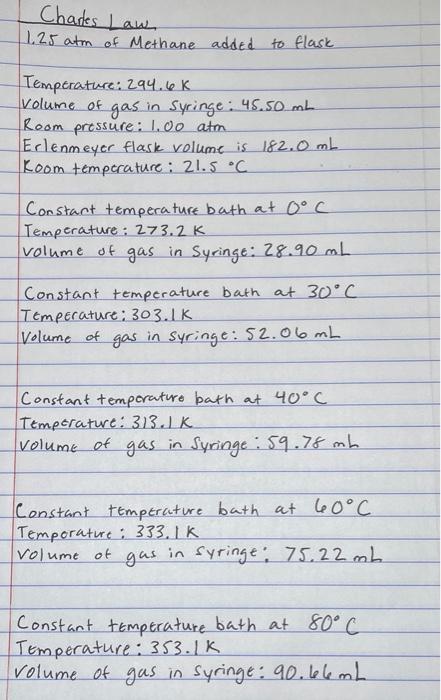 Charles Law
1.25 atm of Methane added to flask
Temperature: 294.6 K
Volume of gas in syringe: 45.50 mL
Room pressure: 1.00 atm
Erlenmeyer flask volume is 182.0 mL
Room temperature: 21.5 °C
Constant temperature bath at 0° C
Temperature: 273.2 K
Volume of gas in Syringe: 28.90 mL
Constant temperature bath at 30° C
Temperature: 303.1 K
Volume of gas in syringe: 52.06 mL
Constant temperature bath at 40° C
Temperature: 313.1 K
Volume of gas in Syringe: 59.78 mL
Constant temperature bath at 60°C
Temperature: 333.1 K
Volume of gas in syringe: 75.22 mL
Constant temperature bath at 80° C
Temperature: 353.1 K
Volume of gas in Syringe: 90.66 mL